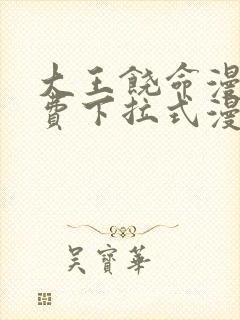 大王饶命漫
费下拉式漫
吴寶華